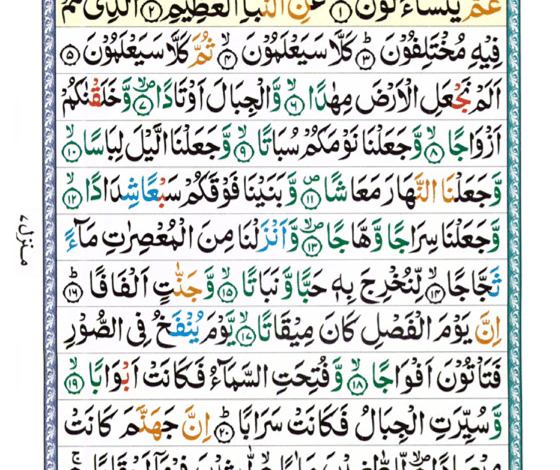 عَمَّ يَتَسَآءَلُوۡنَ ۞۱ عَنِ النَّبَاِ الۡعَظِيۡمِ ۞۲ الَّذِىۡ هُمۡ
فِيۡهِ مُخۡتَلِفُوۡنَ ۞۳ كَلَّا سَيَعۡلَمُوۡنَ ۞۴ ثُمَّ كَلَّا سَيَعۡلَمُوۡنَ ۞۵
اَلَمۡ نَجۡعَلِ الۡاَرۡضَ مِهٰدًا ۞۶ وَّالۡجِبَالَ اَوۡتَادًا ۞۷ وَّخَلَقۡنٰكُمۡ
اَزۡوَاجًا ۞۸ وَّجَعَلۡنَا نَوۡمَكُمۡ سُبَاتًا ۞۹ وَّجَعَلۡنَا الَّيۡلَ لِبَاسًا ۞۱۰
وَّجَعَلۡنَا النَّهَارَ مَعَاشًا ۞۱۱ وَّبَنَيۡنَا فَوۡقَكُمۡ سَبۡعًا شِدَادًا ۞۱۲
وَّجَعَلۡنَا سِرَاجًا وَّهَّاجًا ۞۱۳ وَّاَنۡزَلۡنَا مِنَ الۡمُعۡصِرٰتِ مَآءً
ثَجَّاجًا ۞۱۴ لِّنُخۡرِجَ بِهٖ حَبًّا وَّنَبَاتًا ۞۱۵ وَّجَنّٰتٍ اَلۡفَافًا ۞۱۶
اِنَّ يَوۡمَ الۡفَصۡلِ كَانَ مِيۡقَاتًا ۞۱۷ يَّوۡمَ يُنۡفَخُ فِى الصُّوۡرِ
فَتَاۡتُوۡنَ اَفۡوَاجًا ۞۱۸ وَّفُتِحَتِ السَّمَآءُ فَكَانَتۡ اَبۡوَابًا ۞۱۹
وَّسُيِّرَتِ الۡجِبَالُ فَكَانَتۡ سَرَابًا ۞۲۰ اِنَّ جَهَنَّمَ كَانَتۡ
منزل ۷